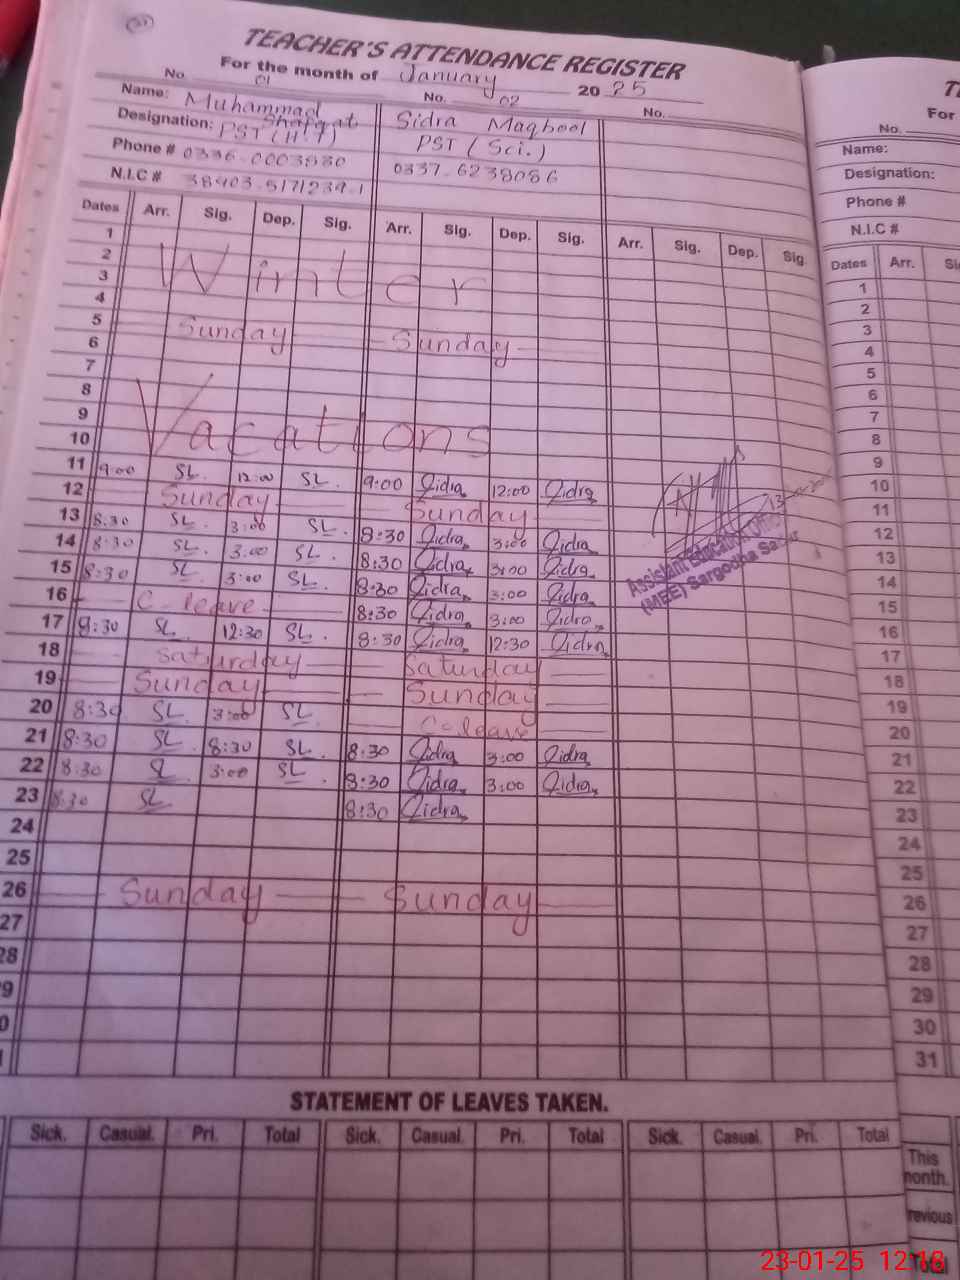 TEACHER'S ATTENDANCE REGISTER
For the month of January 2025
No. 01 No. 02 No.
Name: Muhammad Shafqat Sidra Maqbool
Designation: PST (H.T) PST (Sci.)
Phone # 0336-0003880 0337-6238086
N.I.C # 38403-5171239-1
Dates Arr. Sig. Dep. Sig. Arr. Sig. Dep. Sig. Arr. Sig. Dep. Sig
1
2
3 Winter
4
5 Sunday Sunday
6
7
8
9 Vacations
10
11 9:00 SL. 12:00 SL. 9:00 Sidra 12:00 Sidra
12 Sunday Sunday
13 8:30 SL. 3:00 SL. 8:30 Sidra 3:00 Sidra
14 8:30 SL. 3:00 SL. 8:30 Sidra 3:00 Sidra
15 8:30 SL. 3:00 SL. 8:30 Sidra 3:00 Sidra
16 C-leave 8:30 Sidra 3:00 Sidra
17 9:30 SL. 12:30 SL. 8:30 Sidra 12:30 Sidra
18 Saturday Saturday
19 Sunday Sunday
20 8:30 SL 3:00 SL C-leave
21 8:30 SL 8:30 SL 8:30 Sidra 3:00 Sidra
22 8:30 SL 3:00 SL. 8:30 Sidra 3:00 Sidra
23 8:30 SL 8:30 Sidra
24
25
26 Sunday Sunday
27
28
9
0
Assistant Education Officer
(MEE) Sargodha Sadar
STATEMENT OF LEAVES TAKEN.
Sick. Casual. Pri. Total Sick. Casual. Pri. Total Sick. Casual. Pri. Total
For
No.
Name:
Designation:
Phone #
N.I.C #
Dates Arr.
1
2
3
4
5
6
7
8
9
10
11
12
13
14
15
16
17
18
19
20
21
22
23
24
25
26
27
28
29
30
31
This
month.
Total
23-01-25 12:18